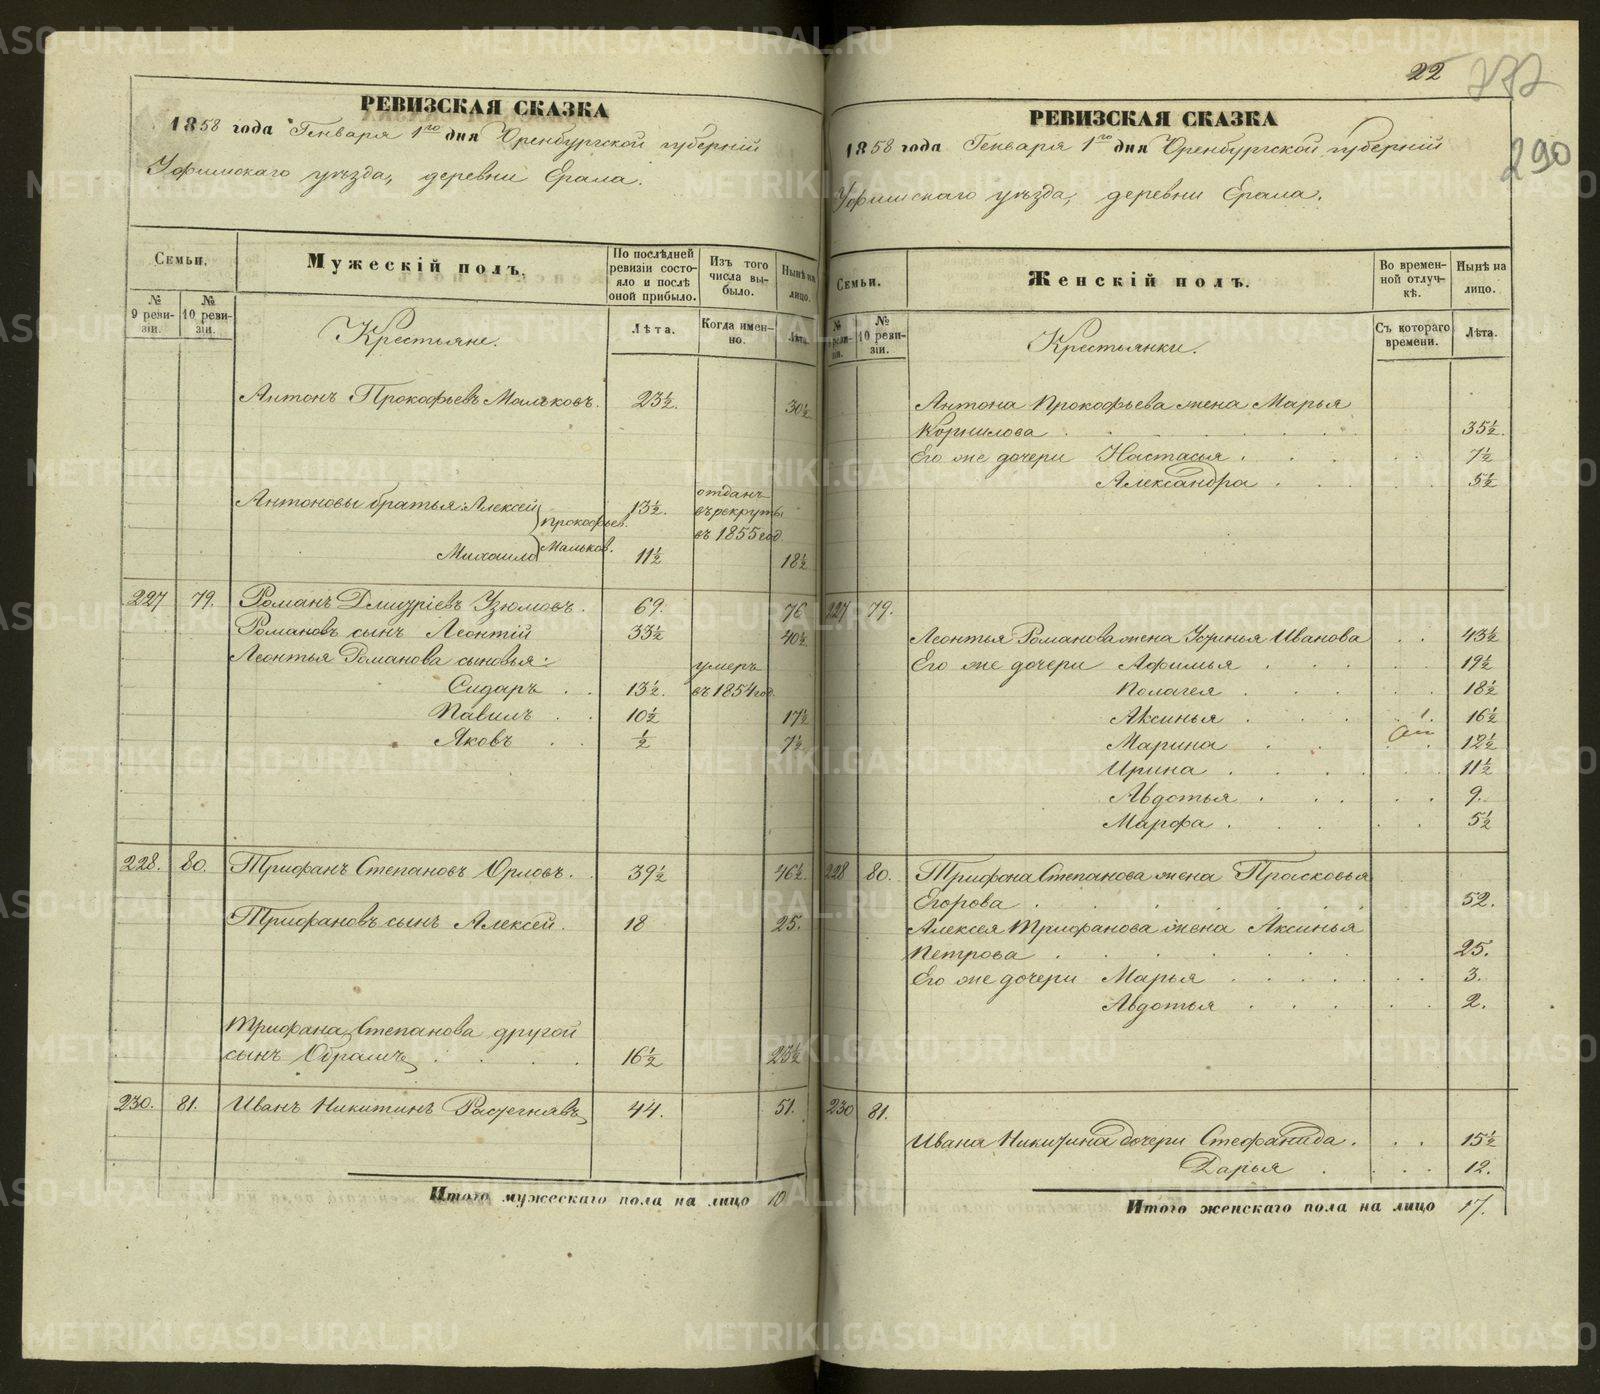 РЕВИЗСКАЯ СКАЗКА
1858 года Генваря 1го дня Оренбургской губерніи
Уфимскаго уѣзда, деревни Ерала.
Семьи.
Мужескій полъ.
По послѣдней ревизіи состояло и послѣ оной прибыло.
Изъ того числа выбыло.
Нынѣ на лицо.
№ 9 ревизіи.
№ 10 ревизіи.
Крестьяне.
Лѣта.
Когда именно.
Лѣта.
Антонъ Прокофьевъ Мальковъ. 23½. 30½
Антоновы братья: Алексей Прокофьев. 13½. отданъ въ рекруты въ 1855 год
Михаило Мальков. 11½ 18½
227 79. Романъ Дмитріевъ Узюмовъ. 69. 76
Романовъ сынъ Леонтій 33½ 40½
Леонтья Романова сыновья:
Сидаръ . . 13½. умеръ въ 1854 год
Павилъ . . 10½ 17½
Яковъ . . ½ 7½
228. 80. Трифанъ Степановъ Орловъ. . 39½ 46½
Трифановъ сынъ Алексей. 18 25.
Трифана Степанова другой
сынъ Обрамъ . . . . 16½ 23½
230. 81. Иванъ Никитинъ 44. 51.
Итого мужескаго пола на лицо 10
22
290
РЕВИЗСКАЯ СКАЗКА
1858 года Генваря 1го дня Оренбургской губерніи
Уфимскаго уѣзда, деревни Ерала.
Семьи.
Женскій полъ.
Во временной отлучкѣ.
Нынѣ на лицо.
№ 9 ревизіи.
№ 10 ревизіи.
Крестьянки.
Съ котораго времени.
Лѣта.
Антона Прокофьева жена Марья
Корнилова . . . . . . . 35½.
Его же дочери Настасья . . . . 7½
Александра . . . . 5½
227 79.
Леонтья Романова жена Устинья Иванова . . 43½
Его же дочери Афимья . . . . . 19½
Полагея . . . . . 18½
Аксинья . . . . 16½
Марина . . . . 12½
Ирина . . . . . 11½
Авдотья . . . . . 9.
Марфа . . . . . 5½
228 80. Трифона Степанова жена Прасковья
Егорова . . . . . . . 52.
Алексея Трифанова жена Аксинья
Петрова . . . . . . . 25.
Его же дочери Марья . . . . . 3.
Авдотья . . . . . 2.
230 81.
Ивана Никитина дочери Стефанида . . . 15½
Дарья . . . . 12.
Итого женскаго пола на лицо 17.
METRIKI.GASO-URAL.RU